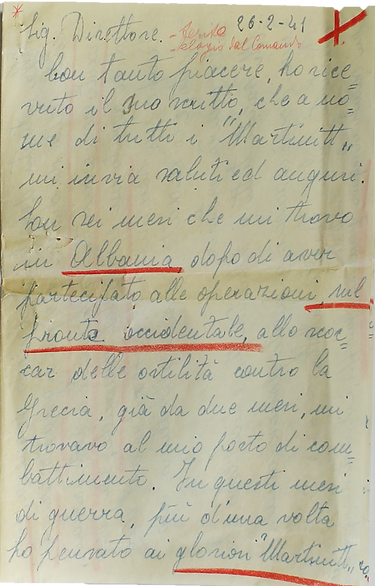 Sig. Direttore. 26-2-41
elogio dal Comando
Con tanto piacere, ho rice=
vuto il suo scritto, che a no=
me di tutti i "Martinitt"
mi invia saluti ed auguri.
Son sei mesi che mi trovo
in Albania dopo di aver
partecipato alle operazioni sul
fronte occidentale, allo scoc=
car delle ostilità contro la
Grecia, già da due mesi, mi
trovavo al mio posto di com=
battimento. In questi mesi
di guerra, più d'una volta
ho pensato ai gloriosi "Martinitt"